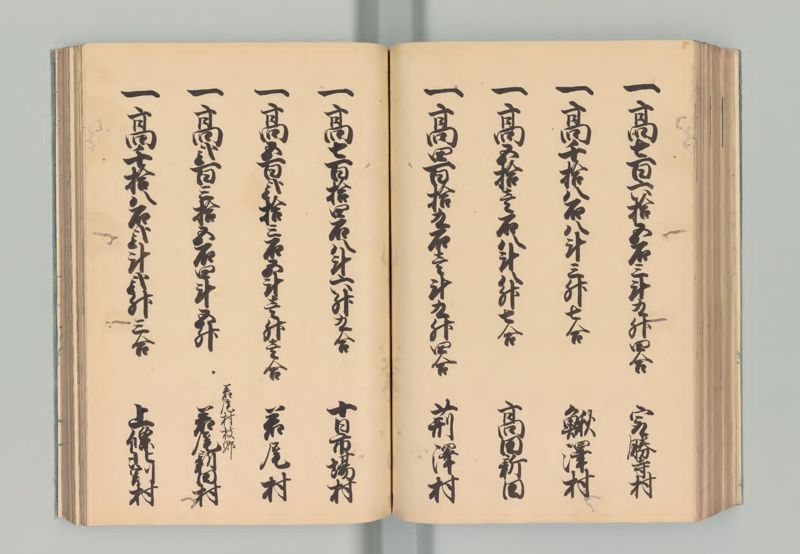 一高七百六拾五石三斗九升四合 宮勝寺村
一高千拾八石八斗三升七合 鰍澤村
一高五拾壱石八斗八升七合 高田新田
一高四百拾九石壱斗九升四合 荊澤村
一高七百拾四石八斗六升九合 十日市場村
一高五百弐拾三石五斗壱升壱合 若尾村
若尾村枝郷
一高弐百三拾五石四斗五升 若尾新田村
一高千拾八石弐斗弐升三合 上條 村